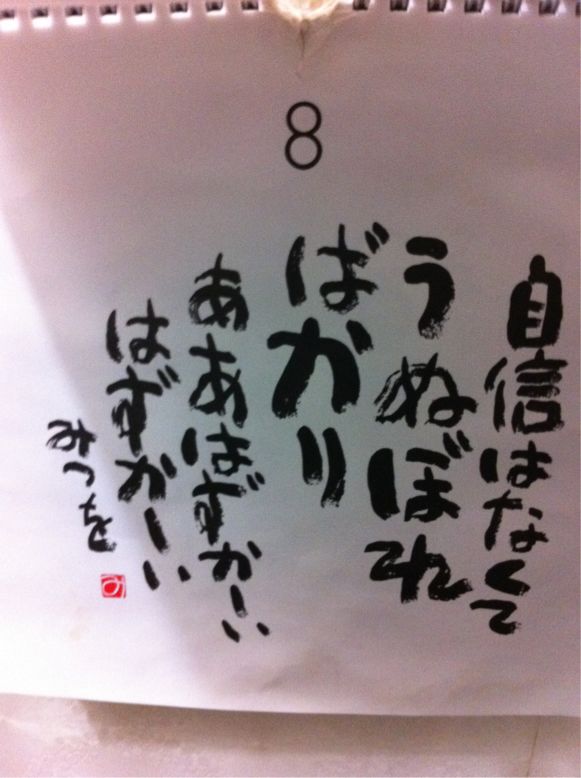 8
自信はなくて
うぬぼれ
ばかり
ああはずかしい
はずかしい
みつを
み